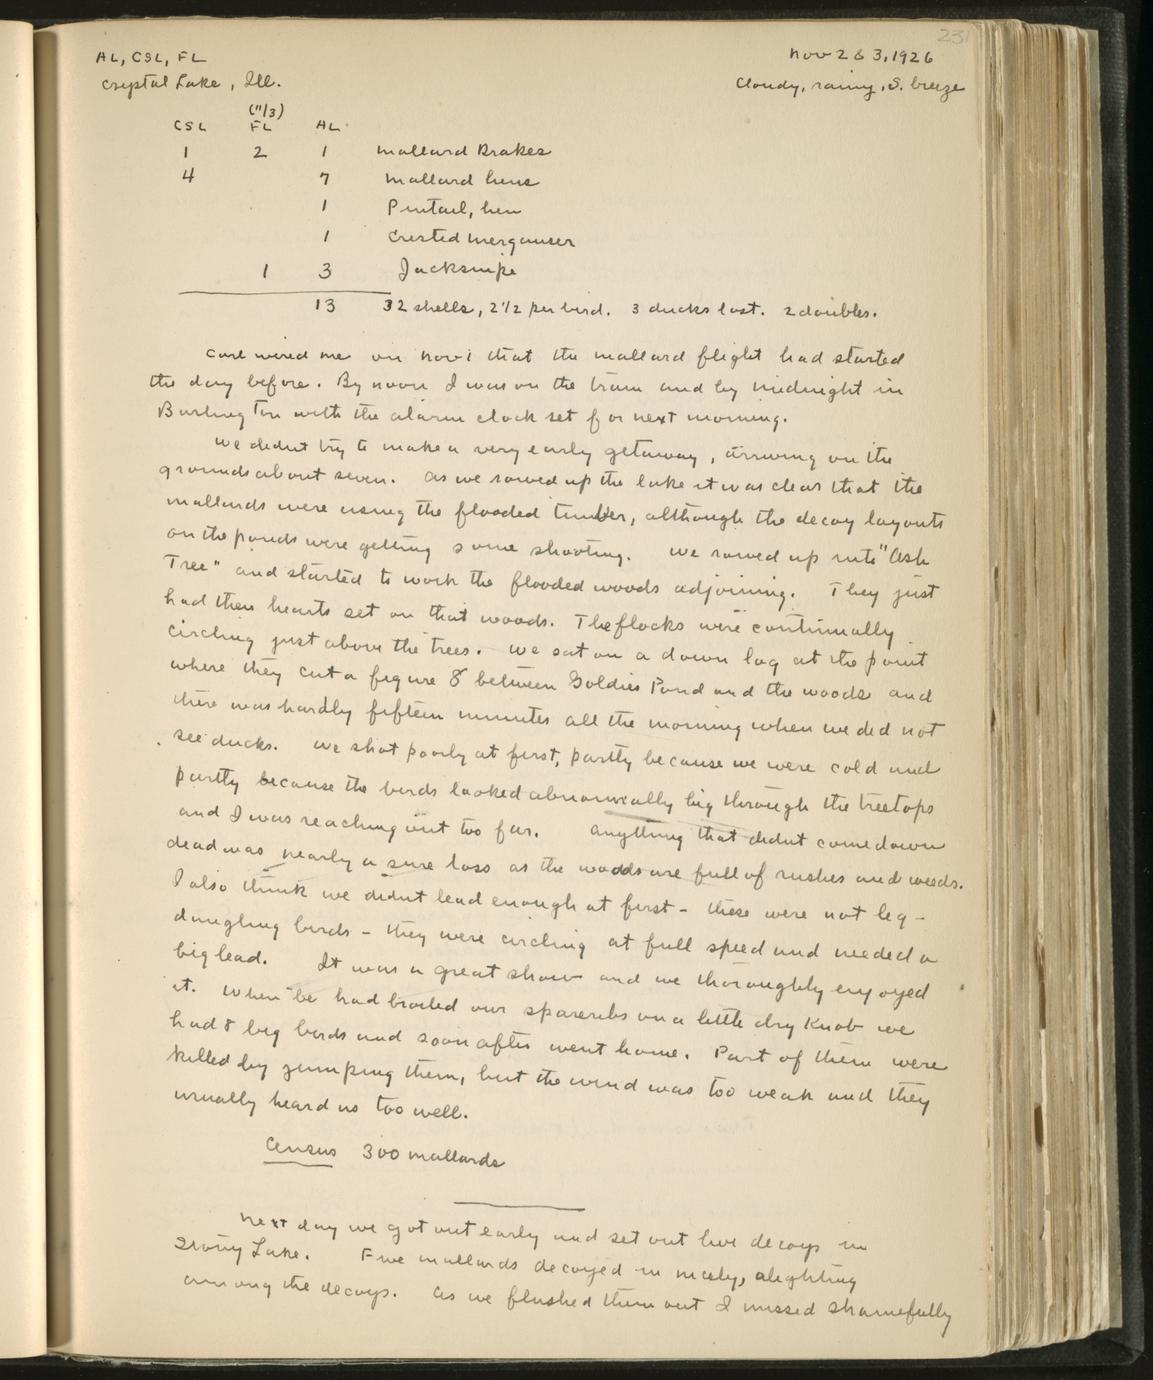 231
AL, CSL, FL
Nov 2 & 3, 1926
Crystal Lake, Ill.
Cloudy, rainy, S. breeze
(11/3)
CSL FL AL
1 2 1 Mallard Drakes
4 7 Mallard hens
1 Pintail, hen
1 Crested Merganser
1 3 Jacksnipe
13 32 shells, 2 1/2 per bird. 3 ducks lost. 2 doubles.
Carl wired me on Nov 1 that the mallard flight had started
the day before. By noon I was on the train and by midnight in
Burlington with the alarm clock set for next morning.
We didnt try to make a very early getaway, arriving on the
grounds about seven. As we rowed up the lake it was clear that the
mallards were using the flooded timber, although the decoy layouts
on the ponds were getting some shooting. We rowed up into "Ash
Tree" and started to work the flooded woods adjoining. They just
had their hearts set on that woods. The flocks were continually
circling just above the trees. We sat on a down log at the point
where they cut a figure 8 between Goldies Pond and the woods and
there was hardly fifteen minutes all the morning when we did not
see ducks. We shot poorly at first, partly because we were cold and
partly because the birds looked abnormally big through the treetops
and I was reaching out too far. Anything that didnt come down
dead was nearly a sure loss as the woods are full of rushes and weeds.
I also think we didnt lead enough at first - these were not leg-
dangling birds - they were circling at full speed and needed a
big lead. It was a great show and we thoroughly enjoyed
it. When we had broiled our spareribs on a little dry knob we
had 8 big birds and soon after went home. Part of them were
killed by jumping them, but the wind was too weak and they
usually heard us too well.
Census 300 mallards
Next day we got out early and set out live decoys in
Stony Lake. Five mallards decoyed in nicely, alighting
among the decoys. As we flushed them out I missed shamefully